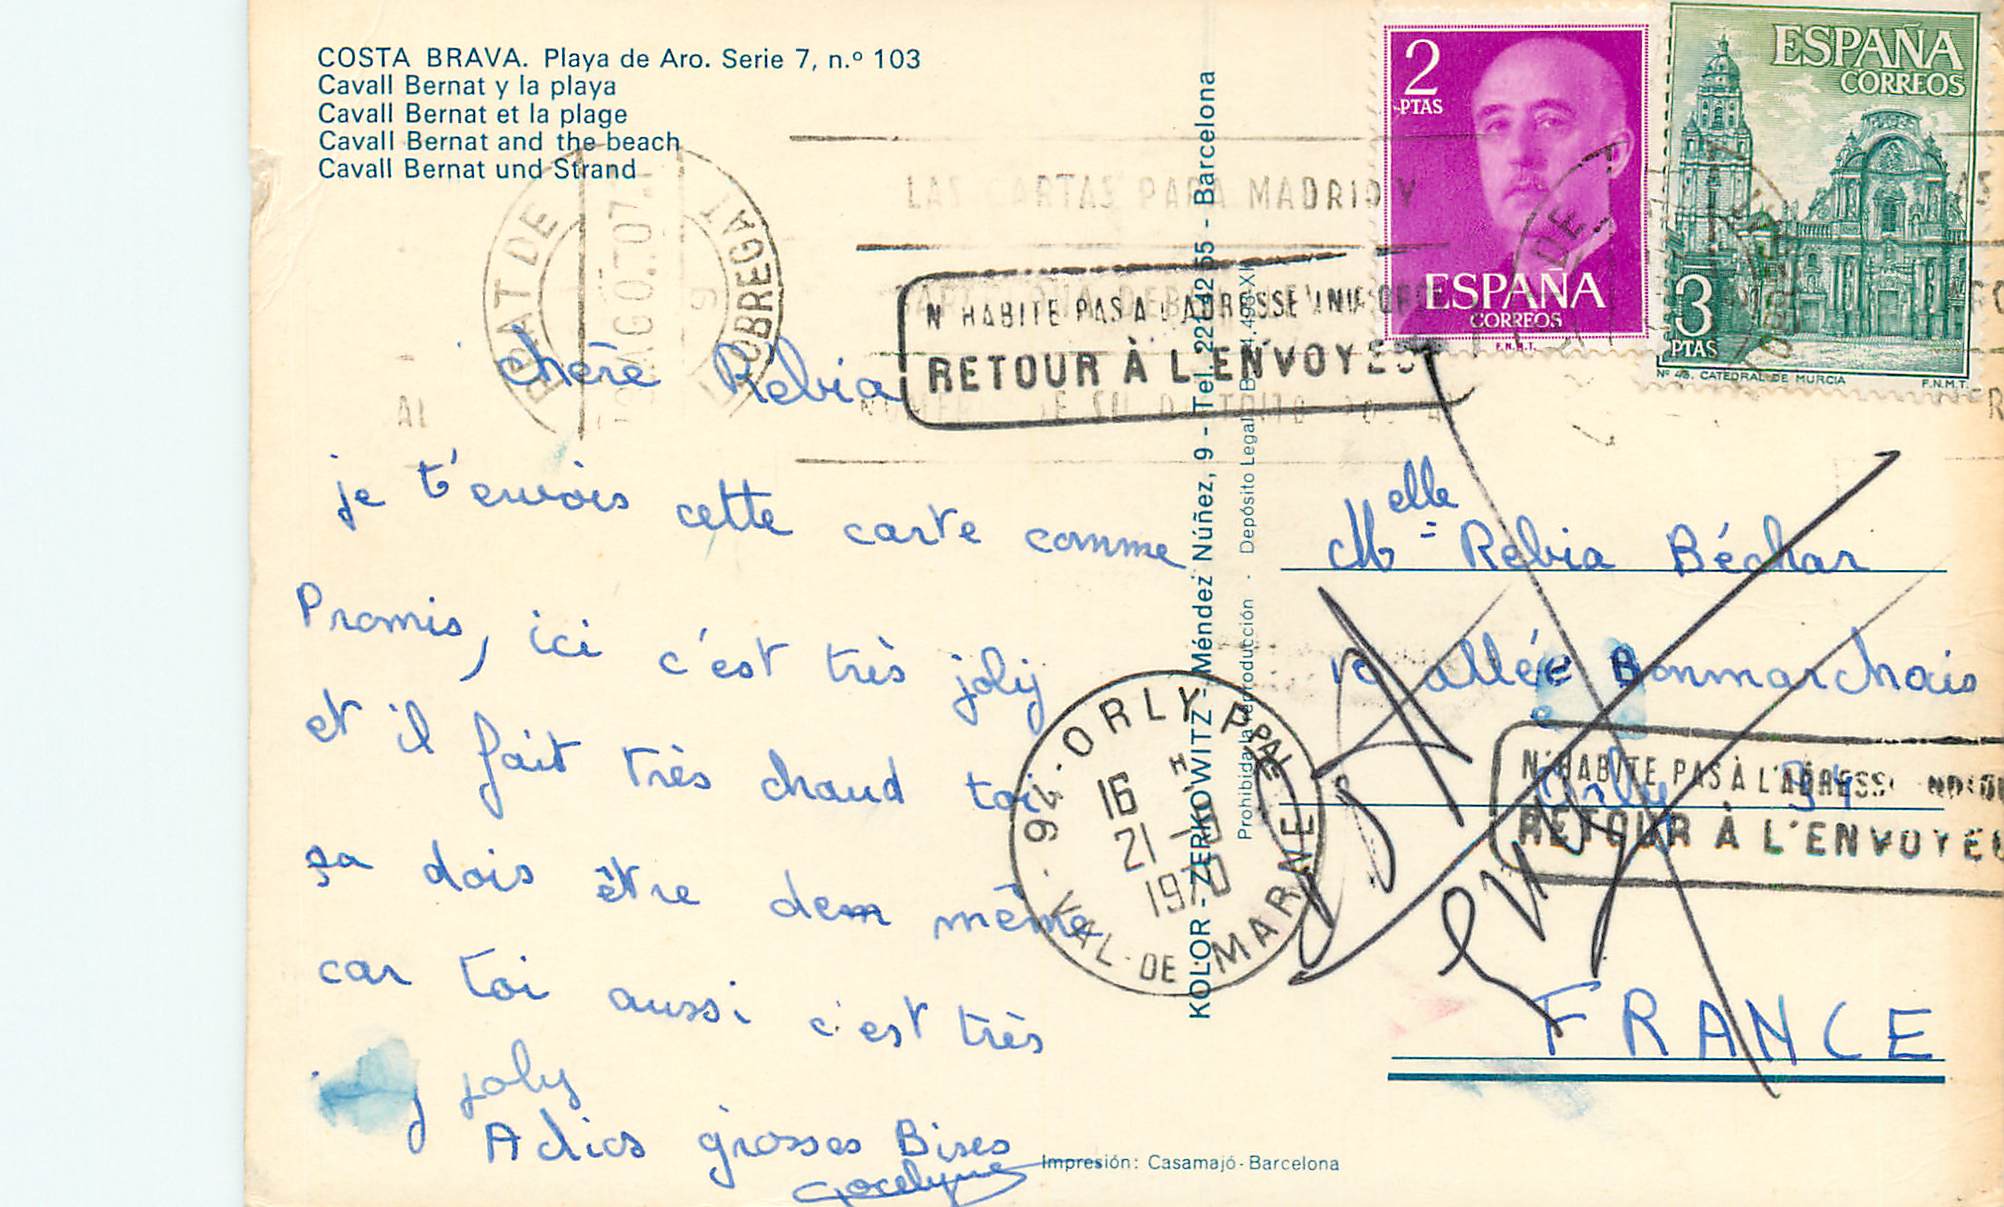 COSTA BRAVA. Playa de Aro. Serie 7, n.º 103
Cavall Bernat y la playa
Cavall Bernat et la plage
Cavall Bernat and the beach
Cavall Bernat und Strand
chère Rebia
je t'envois cette carte comme
Promis, ici c'est très jolij
et il fait très chaud toi
ça dois être dem même
car toi aussi c'est très
joly
Adios grosses Bises
Jocelyne
PRAT DE LLOBREGAT
LAS CARTAS PARA MADRID Y
N'HABITE PAS A L'ADRESSE
RETOUR À L'ENVOYEUR
94 - ORLY PPAL
16 H
21 -
1970
VAL-DE MARNE
KOLOR - ZERKOWITZ - Méndez Núñez, 9 - Tel. - Barcelona
Prohibida la reproducción - Depósito Legal
2
PTAS
ESPAÑA
CORREOS
F.N.M.T.
ESPAÑA
CORREOS
3
PTAS
CATEDRAL DE MURCIA
F.N.M.T.
Melle Rebia Béchar
allée Bonmarchais
Orly 94
N'HABITE PAS À L'ADRESSE
RETOUR À L'ENVOYEU
FRANCE
Impresión: Casamajó - Barcelona